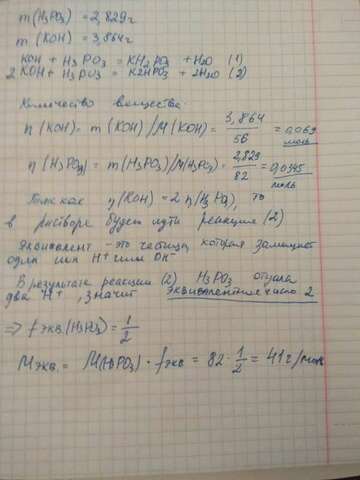 m(H₃PO₃) = 2,829г
m (KOH) = 3,864г
KOH + H₃PO₃ = KH₂PO₃ + H₂O (1)
2KOH + H₃PO₃ = K₂HPO₃ + 2H₂O (2)
Количество вещества:
n (KOH) = m (KOH) / M (KOH) = 3,864 / 56 = 0,069 моль
n (H₃PO₃) = m(H₃PO₃) / M(H₃PO₃) = 2,829 / 82 = 0,0345 моль
Так как n(KOH) = 2 n(H₃PO₃), то
в растворе будет идти реакция (2)
Эквивалент - это частица, которая замещает
один ион H⁺ или OH⁻
В результате реакции (2) H₃PO₃ отдала
два H⁺, значит эквивалентное число 2
⇒ f экв.(H₃PO₃) = 1/2
M экв. = M(H₃PO₃) · f экв = 82 · 1/2 = 41 г/моль